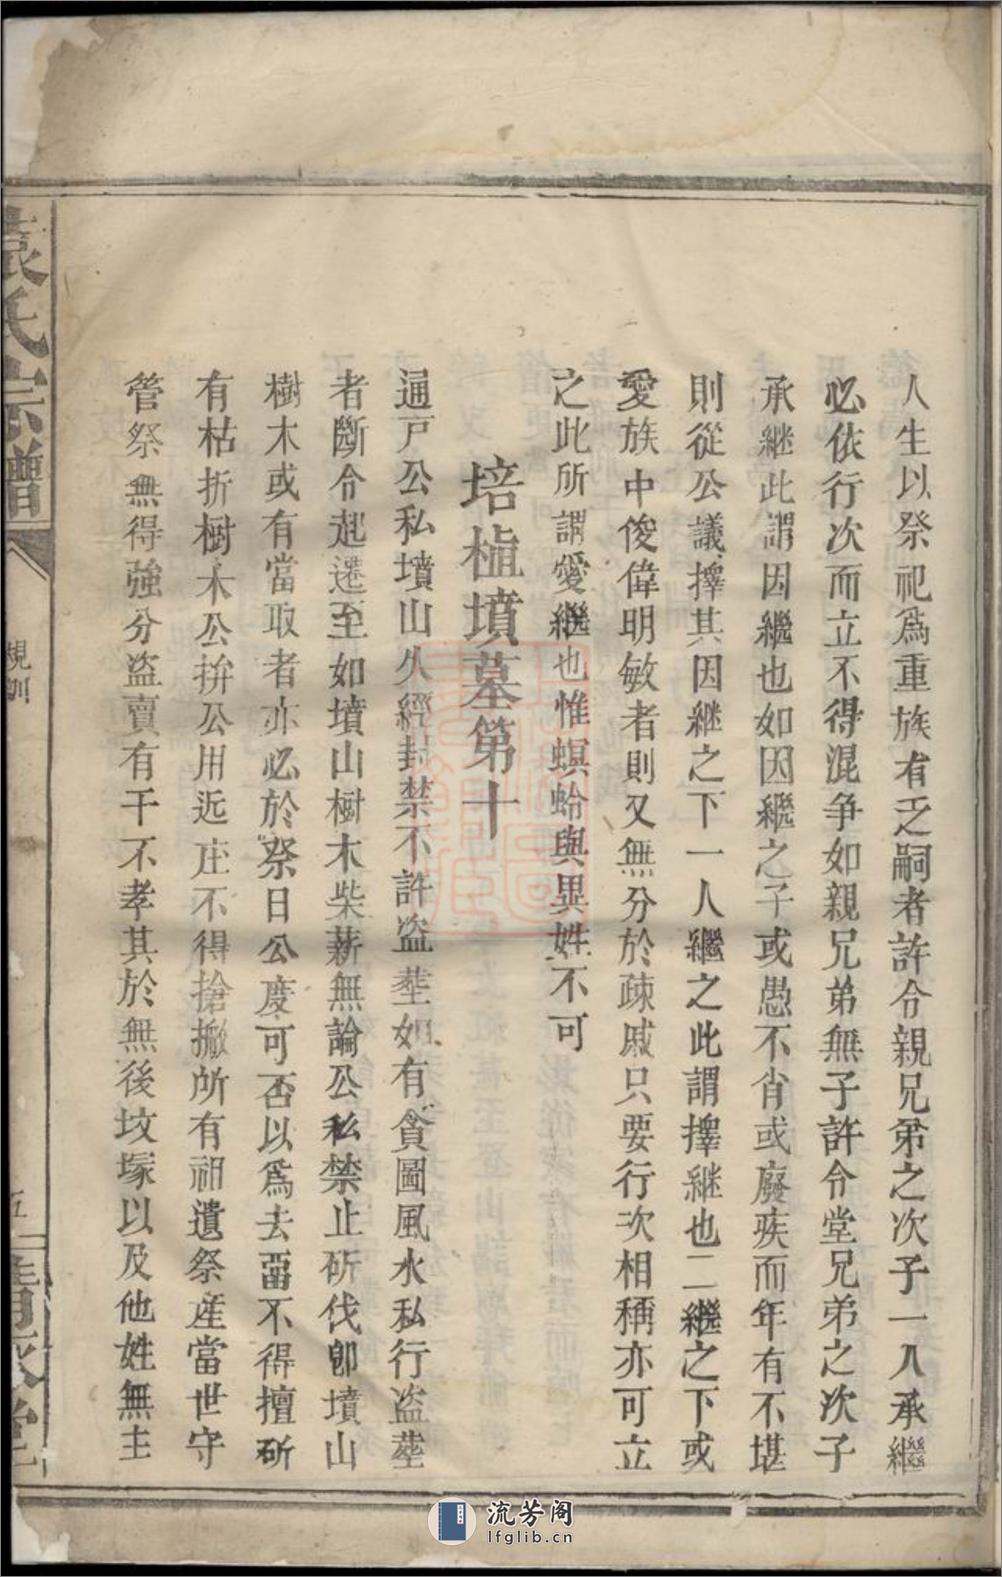 人生以祭祀爲重族有乏嗣者許令親兄弟之次子一人承繼
必依行次而立不得混争如親兄弟無子許令堂兄弟之次子
承継此謂因繼也如因繼之子或愚不肖或廢疾而年有不堪
則從公議擇其因継之下一人繼之此謂擇継也二繼之下或
愛族中俊偉明敏者則又無分於疎戚只要行次相稱亦可立
之此所謂愛繼也惟螟蛉與異姓不可
培植墳墓第十
通戸公私墳山久經封禁不許盗塟如有貪圖風水私行盗塟
者斷令起遷至如墳山樹木柴薪無論公私禁止斫伐卽墳山
樹木或有當取者亦必於祭日公度可否以爲去畱不得擅斫
有枯折樹木公拚公用近庄不得搶撇所有祖遺祭産當世守
管祭無得強分盗賣有干不孝其於無後坟塚以及他姓無主
袁氏宗譜
規訓
五
流芳阁
lfglib.cn